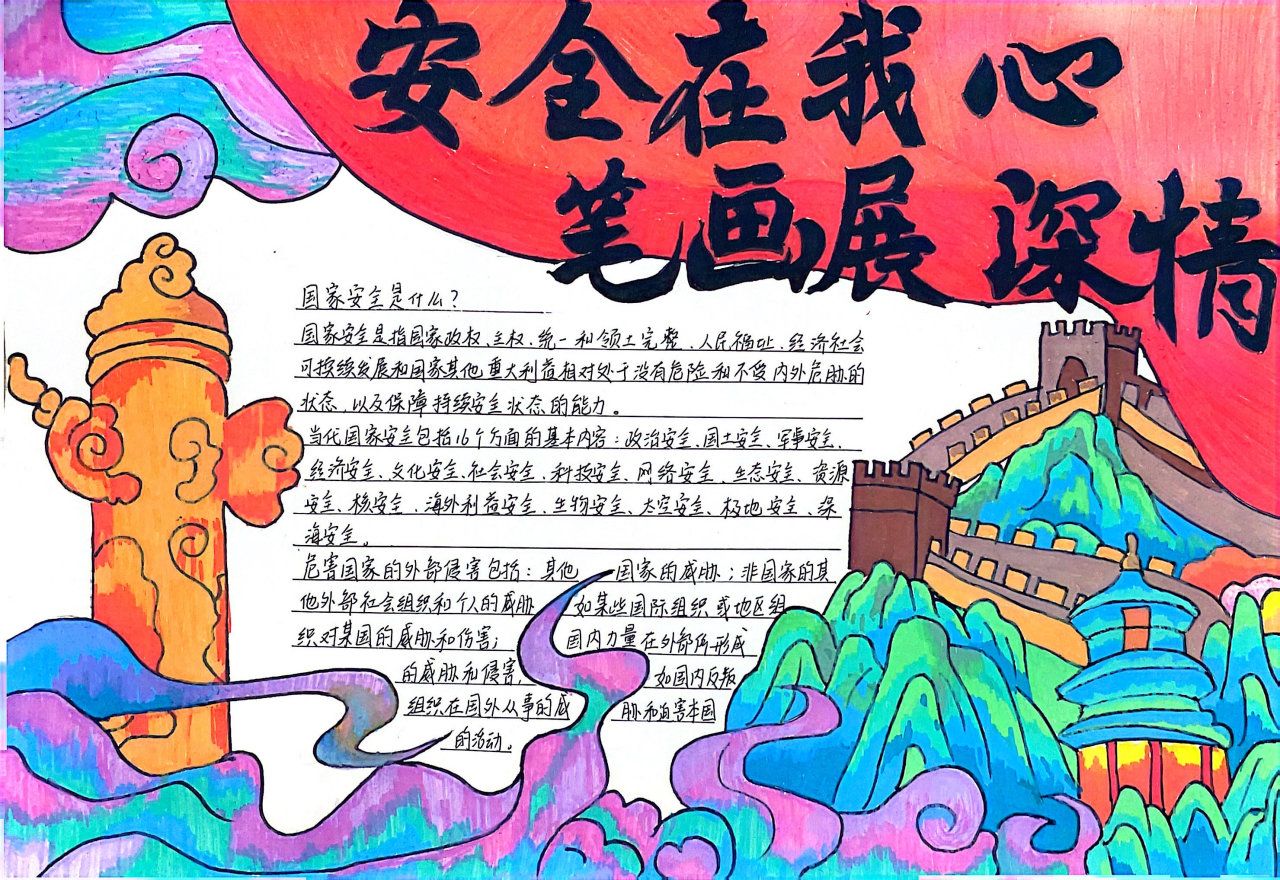 安全在我心
笔画展深情
国家安全是什么？
国家安全是指国家政权、主权、统一和领土完整、人民福祉、经济社会
可持续发展和国家其他重大利益相对处于没有危险和不受内外危胁的
状态，以及保障持续安全状态的能力。
当代国家安全包括16个方面的基本内容：政治安全、国土安全、军事安全、
经济安全、文化安全、社会安全、科技安全、网络安全、生态安全、资源
安全、核安全、海外利益安全、生物安全、太空安全、极地安全、深
海安全。
危害国家的外部侵害包括：其他国家的威胁；非国家的其
他外部社会组织和个人的威胁 如某些国际组织或地区组
织对某国的威胁和伤害； 国内力量在外部所形成
的威胁和侵害， 如国内反叛
组织在国外从事的威胁和迫害本国
的活动。